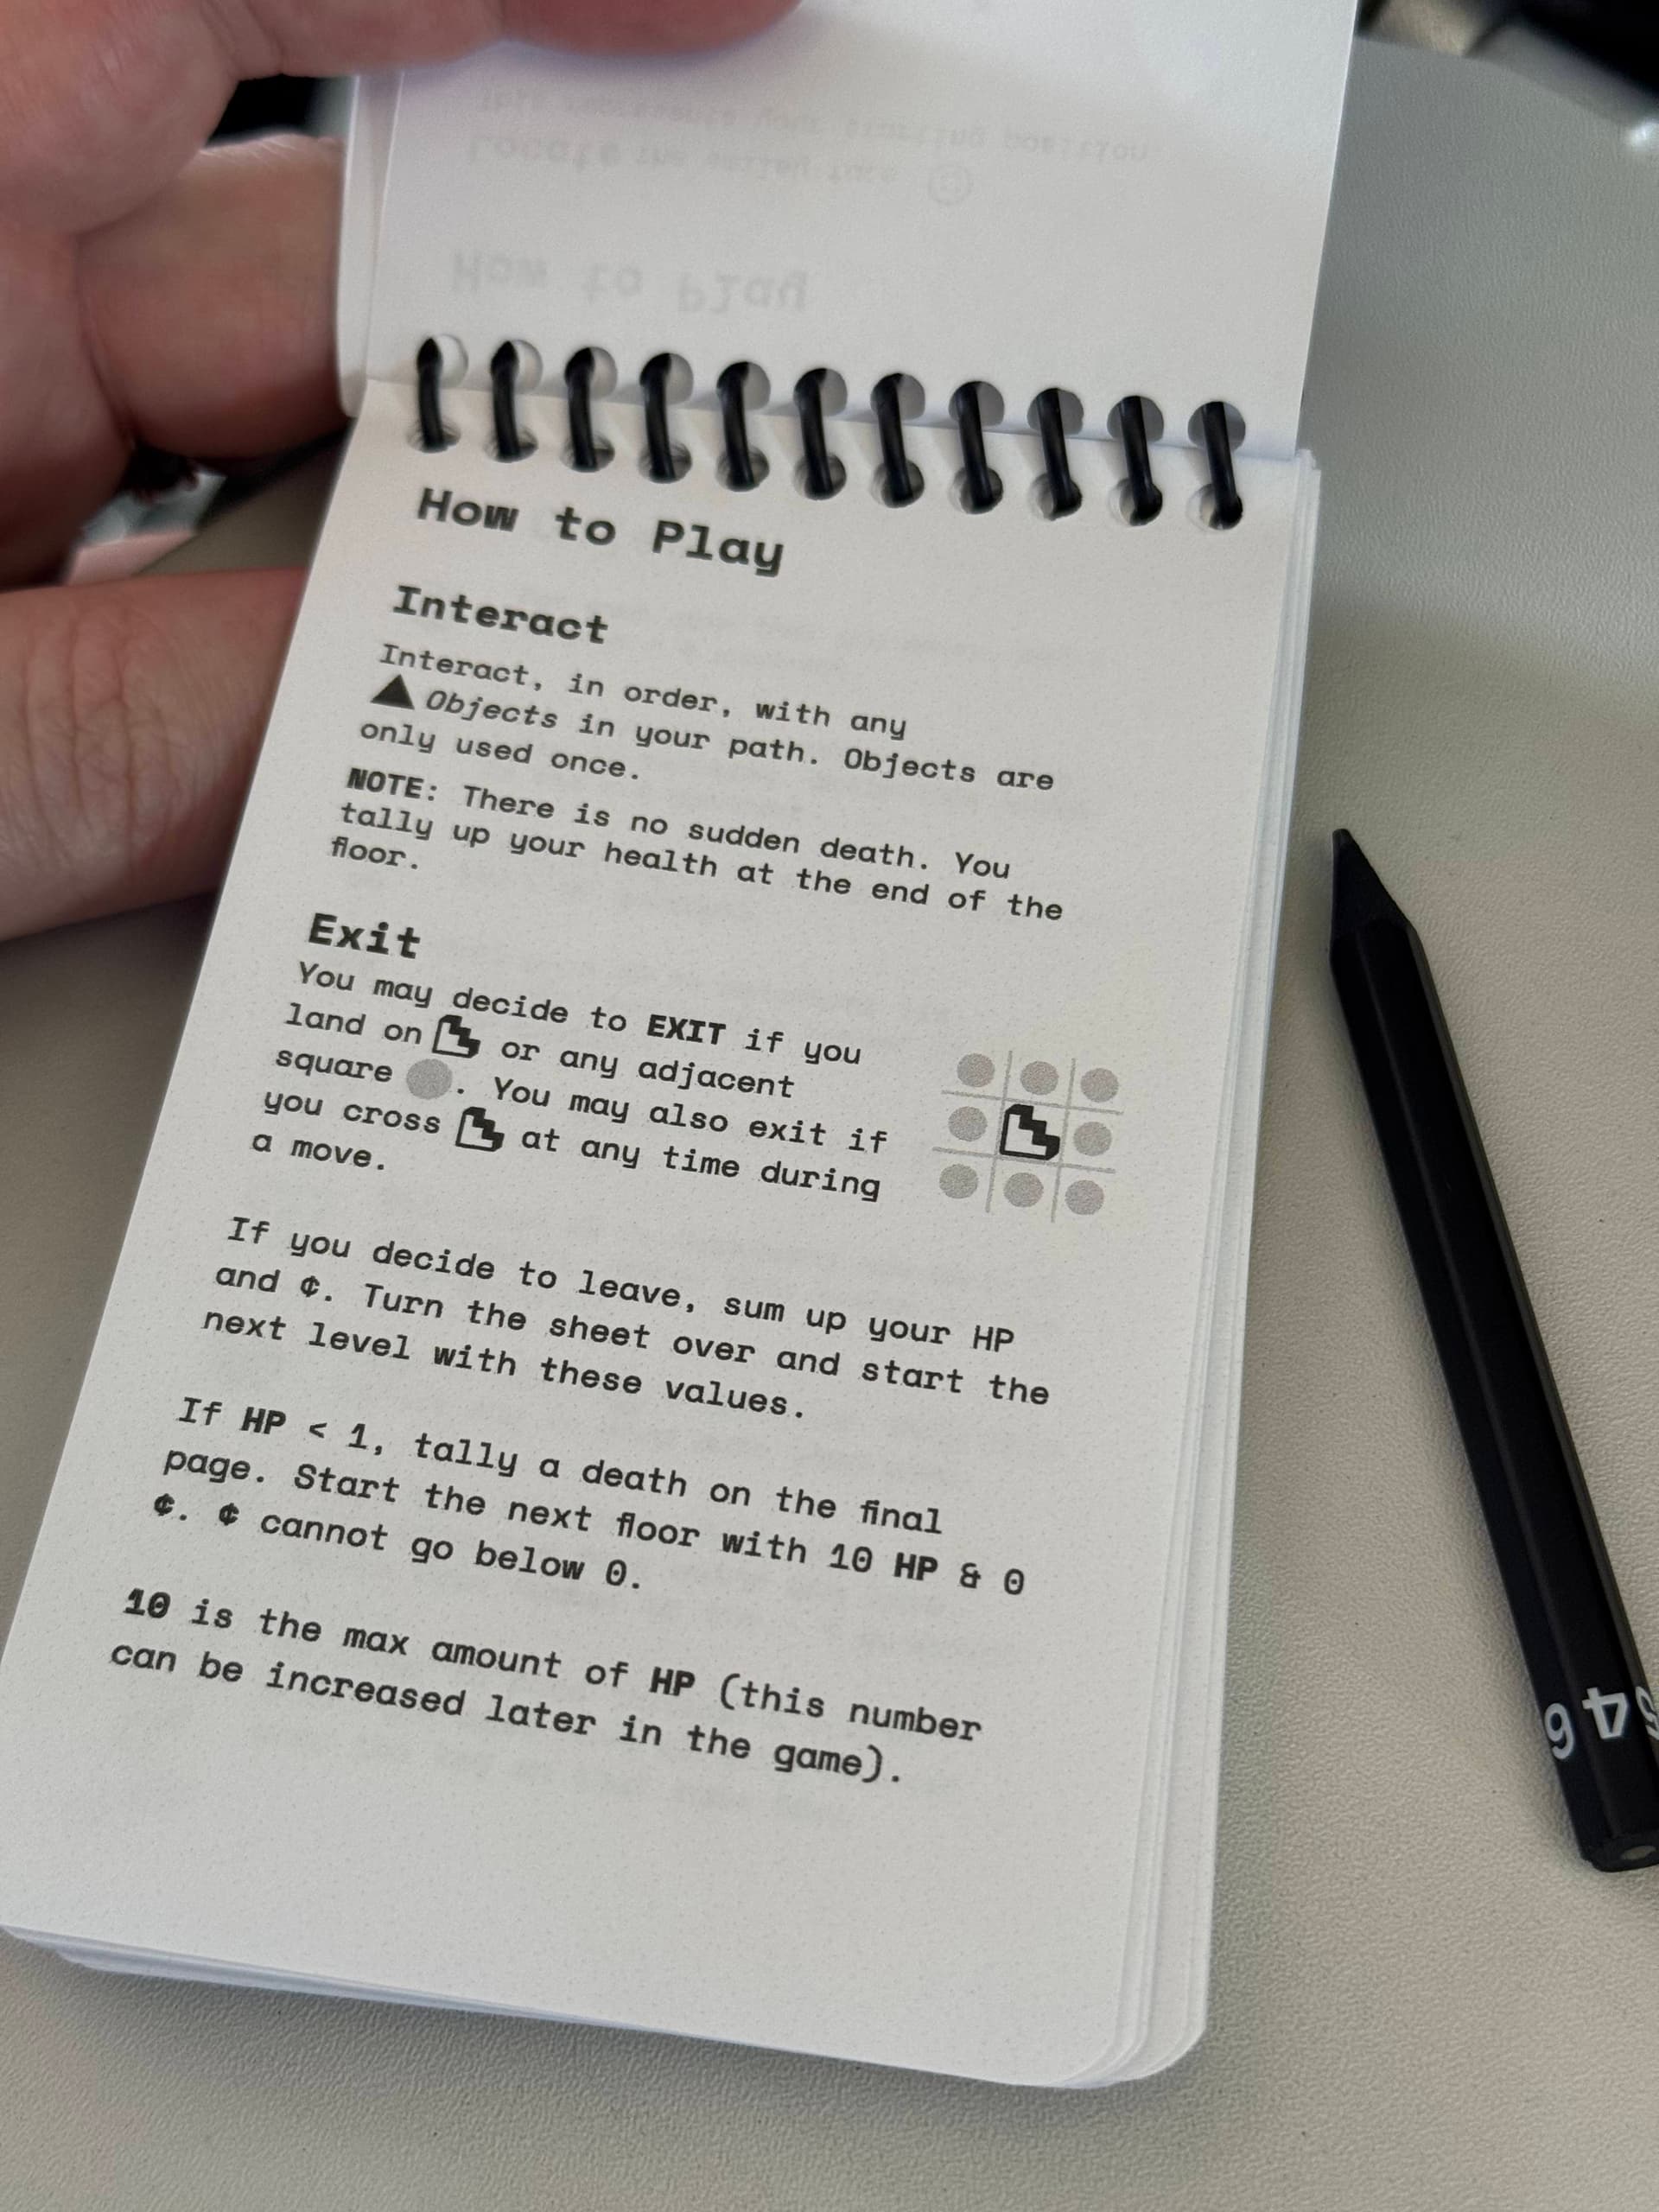 How to Play
Interact
Interact, in order, with any
▲ Objects in your path. Objects are
only used once.
NOTE: There is no sudden death. You
tally up your health at the end of the
floor.
Exit
You may decide to EXIT if you
land on or any adjacent
square . You may also exit if
you cross at any time during
a move.
If you decide to leave, sum up your HP
and ¢. Turn the sheet over and start the
next level with these values.
If HP < 1, tally a death on the final
page. Start the next floor with 10 HP & 0
¢. ¢ cannot go below 0.
10 is the max amount of HP (this number
can be increased later in the game).
How to Play
Locate the smiley face
This represents your starting position
6 4 5